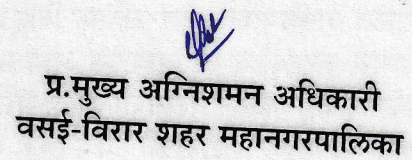 प्र.मुख्य अग्निशमन अधिकारी
वसई-विरार शहर महानगरपालिका